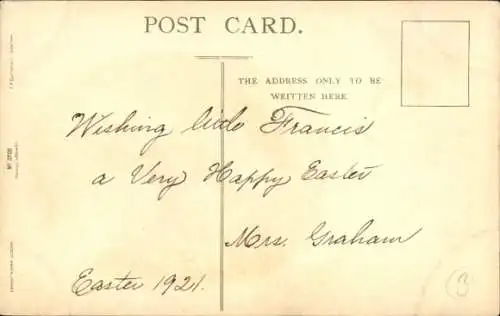 POST CARD.
THE ADDRESS ONLY TO BE
WRITTEN HERE
Wishing little Francis
a Very Happy Easter
Mrs. Graham
Easter 1921.
3